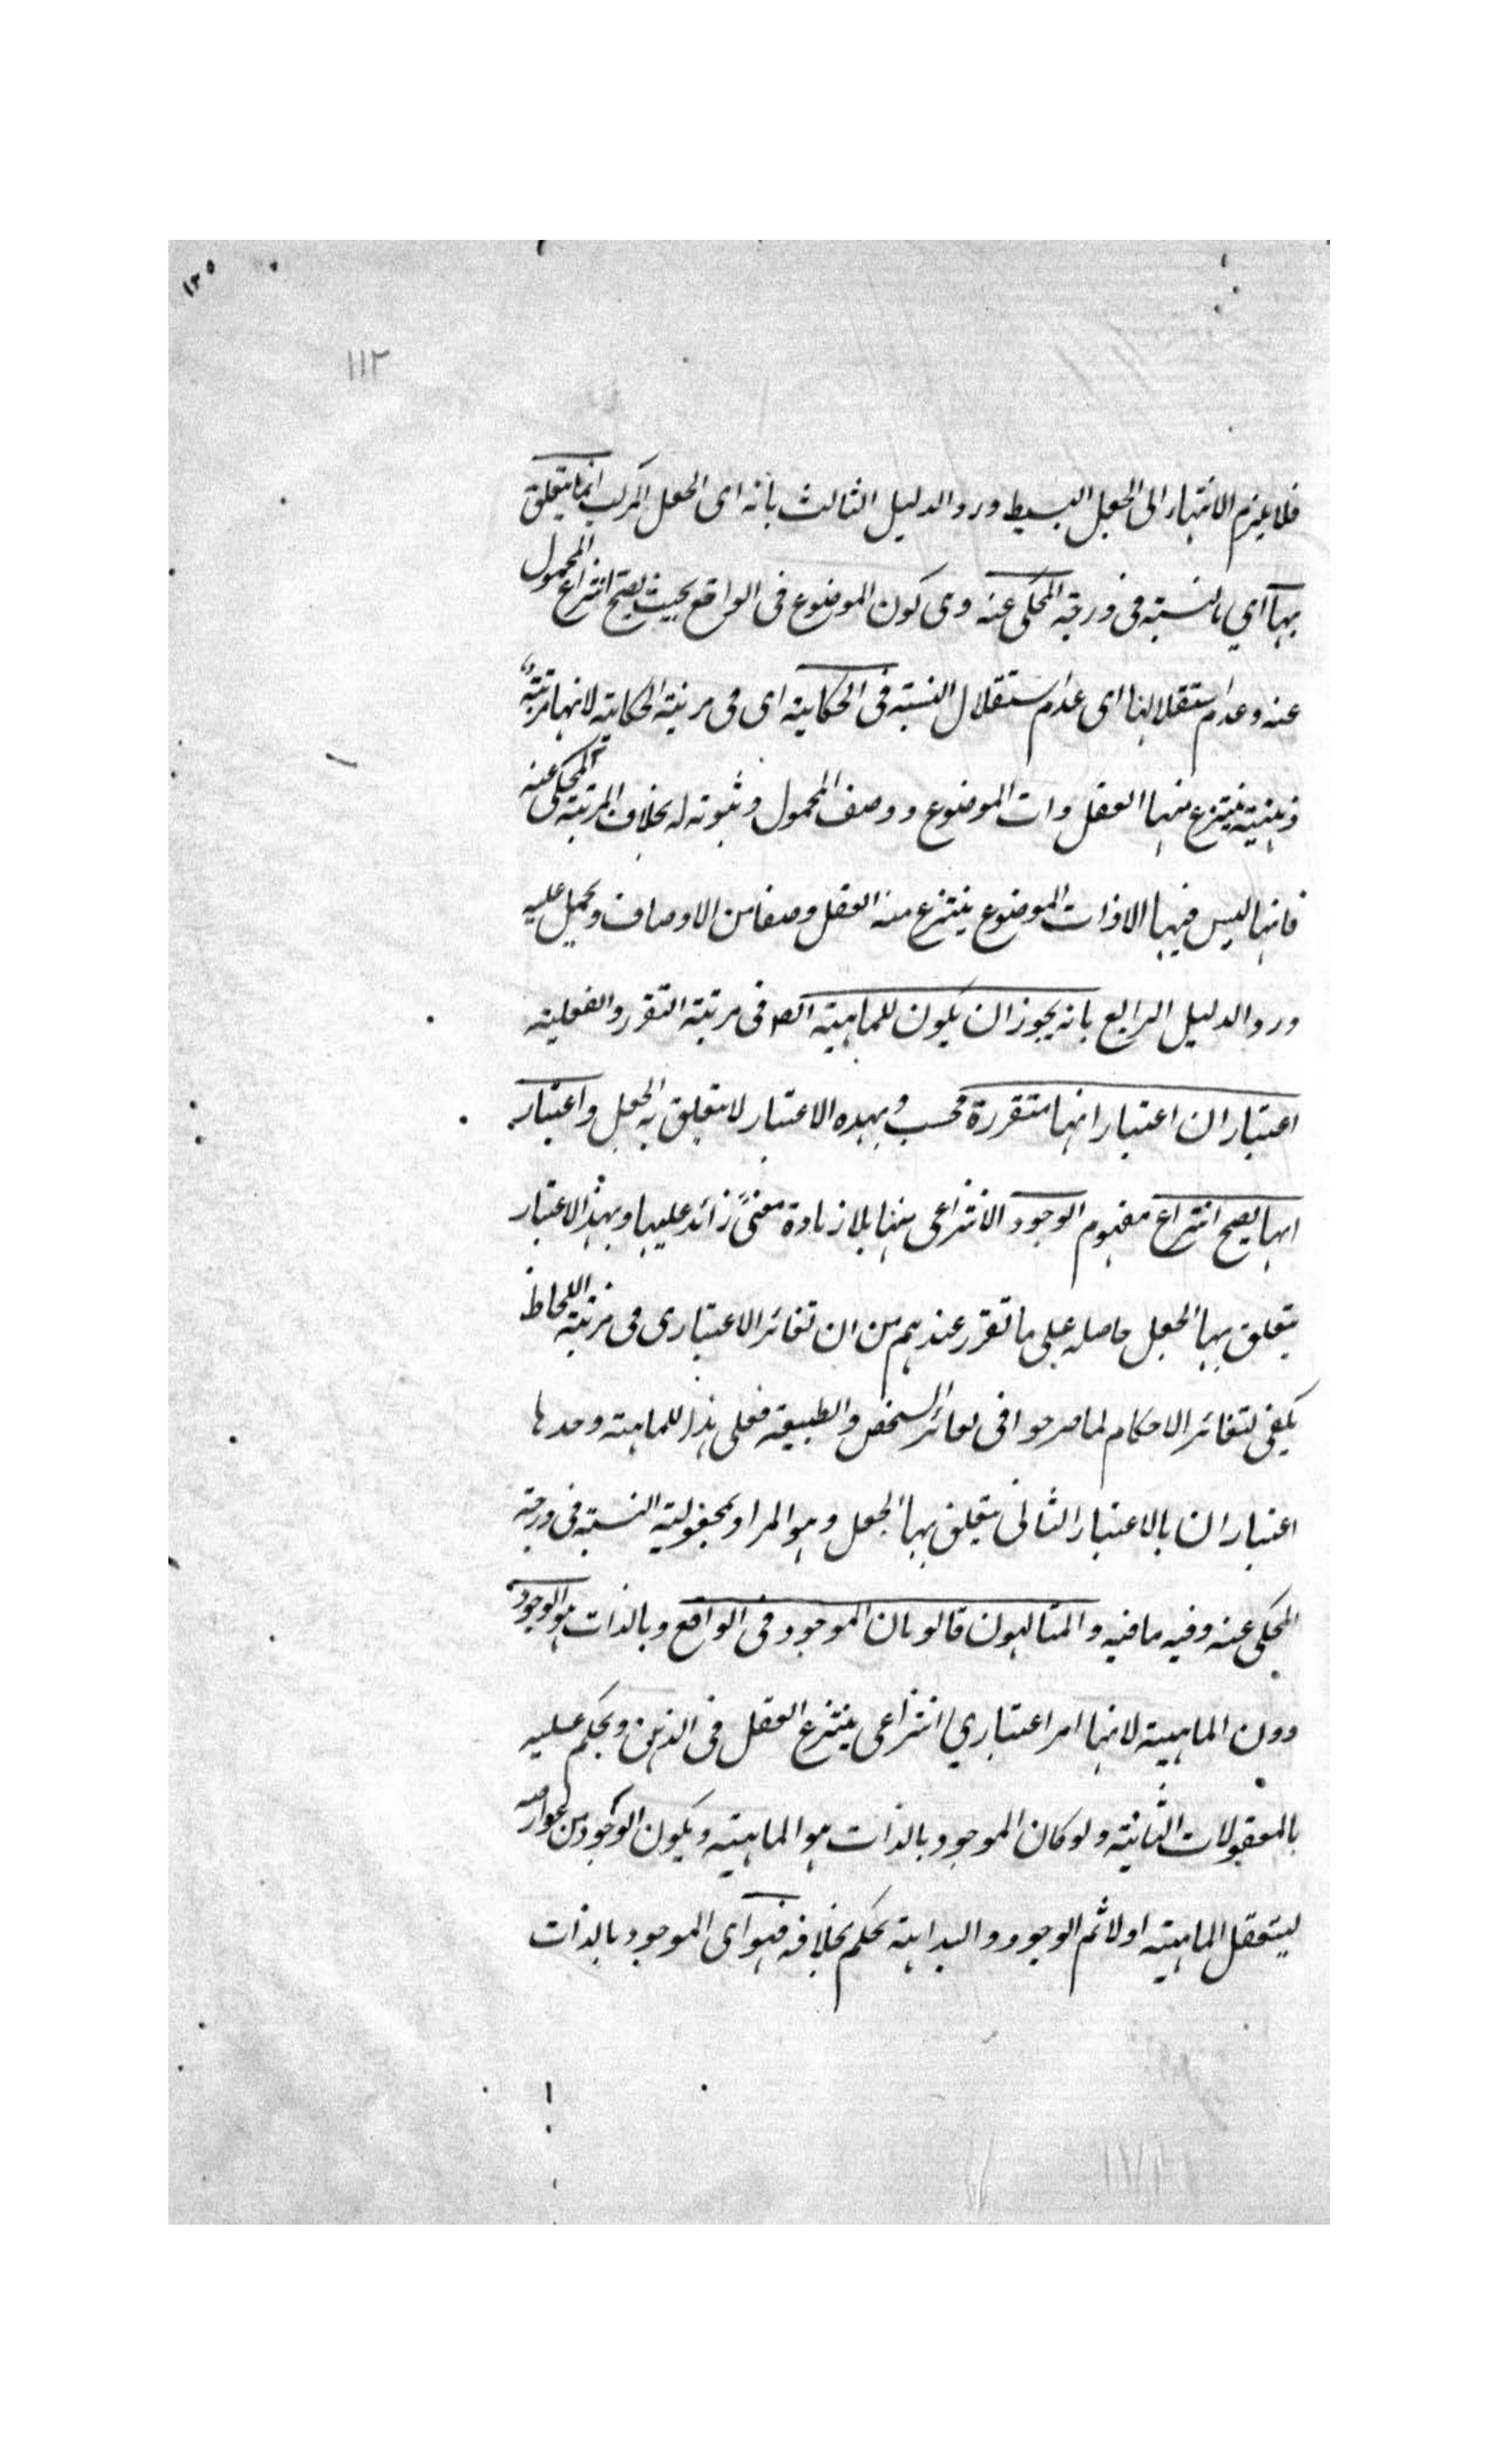 ١٣٥
١١٢
فلا يلزم الانتهاء الى الجعل البسيط ورد الدليل الثالث بأنه اى الجعل المركب انما يتعلق
بها اي بالنسبة فى درجة المحكى عنه وهى كون الموضوع فى الواقع بحيث يصح انتزاع المحمول
عنه وعدم استقلالها اى عدم استقلال النسبة فى الحكاية اى فى مرتبة الحكاية لانها مرتبة
ذهنية ينتزع منها العقل ذات الموضوع ووصف المحمول وثبوته له بخلاف المرتبة المحكى عنه
فانها ليس فيها الا ذات الموضوع ينتزع منه العقل وصفا من الاوصاف ويحمل عليه
ورد الدليل الرابع بانه يجوز ان يكون للماهية فى مرتبة التقرر والفعلية
اعتباران اعتبار انها متقررة فحسب وبهذه الاعتبار لا يتعلق به الجعل واعتبار
انها يصح انتزاع مفهوم الوجود الانتزاعى منها بلا زيادة معنىً زائد عليها وبهذا الاعتبار
يتعلق بها الجعل حاصله على ما تقرر عندهم من ان تغائر الاعتبارى فى مرتبة اللحاظ
يكفى لتغائر الاحكام لما صرحوا فى تغائر الشخص والطبيعة فعلى هذا للماهية وحدها
اعتباران بالاعتبار الثانى يتعلق بها الجعل وهو المراد بمجعولية النسبة فى درجة
المحكى عنه وفيه ما فيه والمتالهون قالو بان الموجود فى الواقع وبالذات هو الوجود
دون الماهية لانها امر اعتباري انتزاعى ينتزع العقل فى الذهن ويحكم عليه
بالمعقولات الثانية ولو كان الموجود بالذات هو الماهية ويكون الوجود من عوارضه
ليتعقل الماهية اولا ثم الوجود والبداهة تحكم بخلافه فهو اى الموجود بالذات